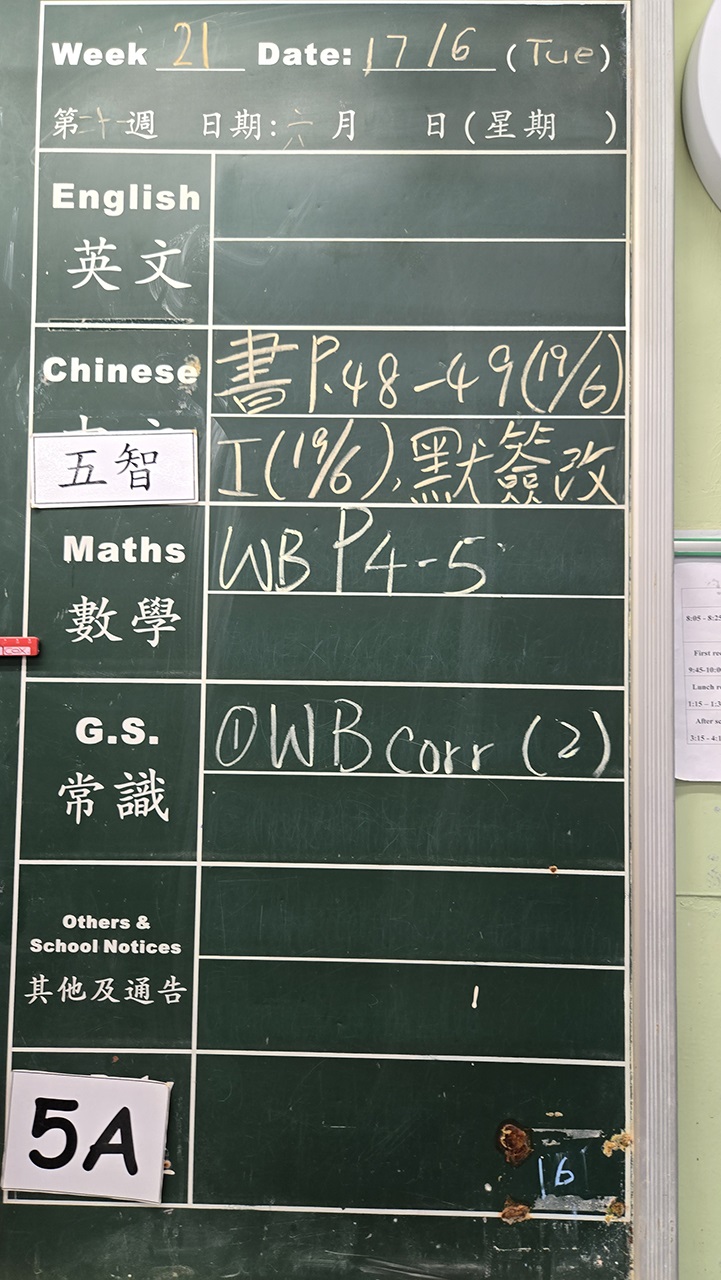 Week 21 Date: 17/6 (Tue)
第二十週 日期:六月 日(星期 )
English
英文
Chinese
書P.48-49(19/6)
五智
I(19/6),默簽改
Maths
WB P4-5
數學
G.S.
①WB corr (2)
常識
Others &
School Notices
其他及通告
1
5A
16
8:05 - 8:25
First re
9:45-10:0
Lunch r
1:15 – 1:3
After sc
3:15 - 4:1